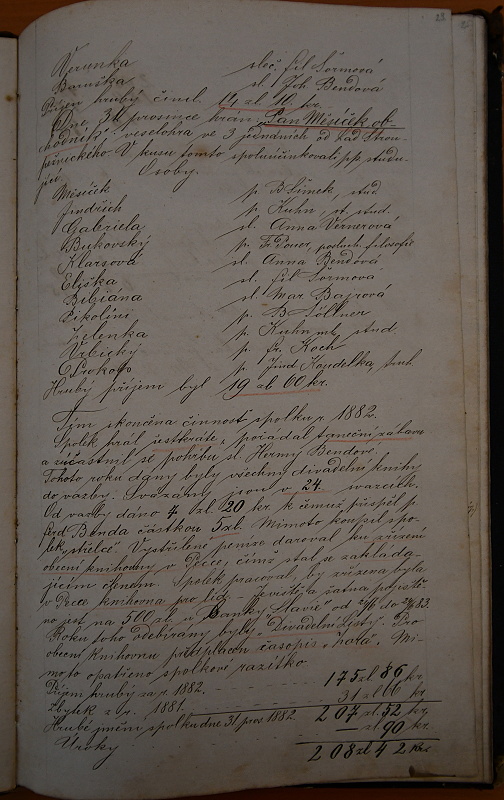 22
Verunka sleč. Fil Šörmová
Baruška sl. Joh. Bendová
Příjem hrubý činil 14 zl 10 kr.
Dne 31 prosince hrán: "Pan Měsíček ob-
chodník" veselohra ve 3 jednáních od Lad Strou-
pežnického. V kusu tomto spoluúčinkovali pp. studu-
jící. Osoby.
Měsíček p. B Šimek, stud
Jindřich p. Kuhn, st. stud.
Gabriela sl. Anna Vernerová
Bukovský p. Fr. posluch. filosofie
Klarsová sl. Anna Bendová
Eliška sl. Fil Šörmová
Bibiána sl. Mar. Bajrová
Pikolini p. B
Zelenka p. Kuhn ml. stud.
Vrbický p. Fr. Koch
Prokop p. Jind Koudelka, stud.
Hrubý příjem byl 19 zl 60 kr.
Tým skončena činnost spolku r. 1882.
Spolek hrál šestkráte, pořádal taneční zábavu
a zúčastnil se pohřbu sl. Hermy Bendové.
Tohoto roku dány byly všechny divadelní knihy
do vazby. Svázány jsou v 24 svazcích.
Od vazby dáno 4 zl. 20 kr. k čemuž přispěl p.
Ferd Benda částkou 5 zl. Mimoto koupil spo-
lek "střelce". Vystřílené peníze daroval ku zřízení
obecní knihovny v Pecce, čímž stal se zakláda-
jícím členem. Spolek pracoval, by zřízena byla
v Pecce knihovna pro lid. – Jeviště a šatna pojiště-
no jest na 500 zl. v Banky "Slavie" od
Roku toho odebírány byly "Divadelní Listy". Pro
obecní knihovnu předplacen časopis Mi-
moto opatřeno spolkové razítko
Příjem hrubý za r. 1882. 175 zl 86 kr.
Zbytek z r. 1881. 31 zl 66 kr
Hrubé jmění spolku dne 31 pros 1882 207 zl. 52 kr.
Úroky — zl 90 kr.
208 zl 42 kr